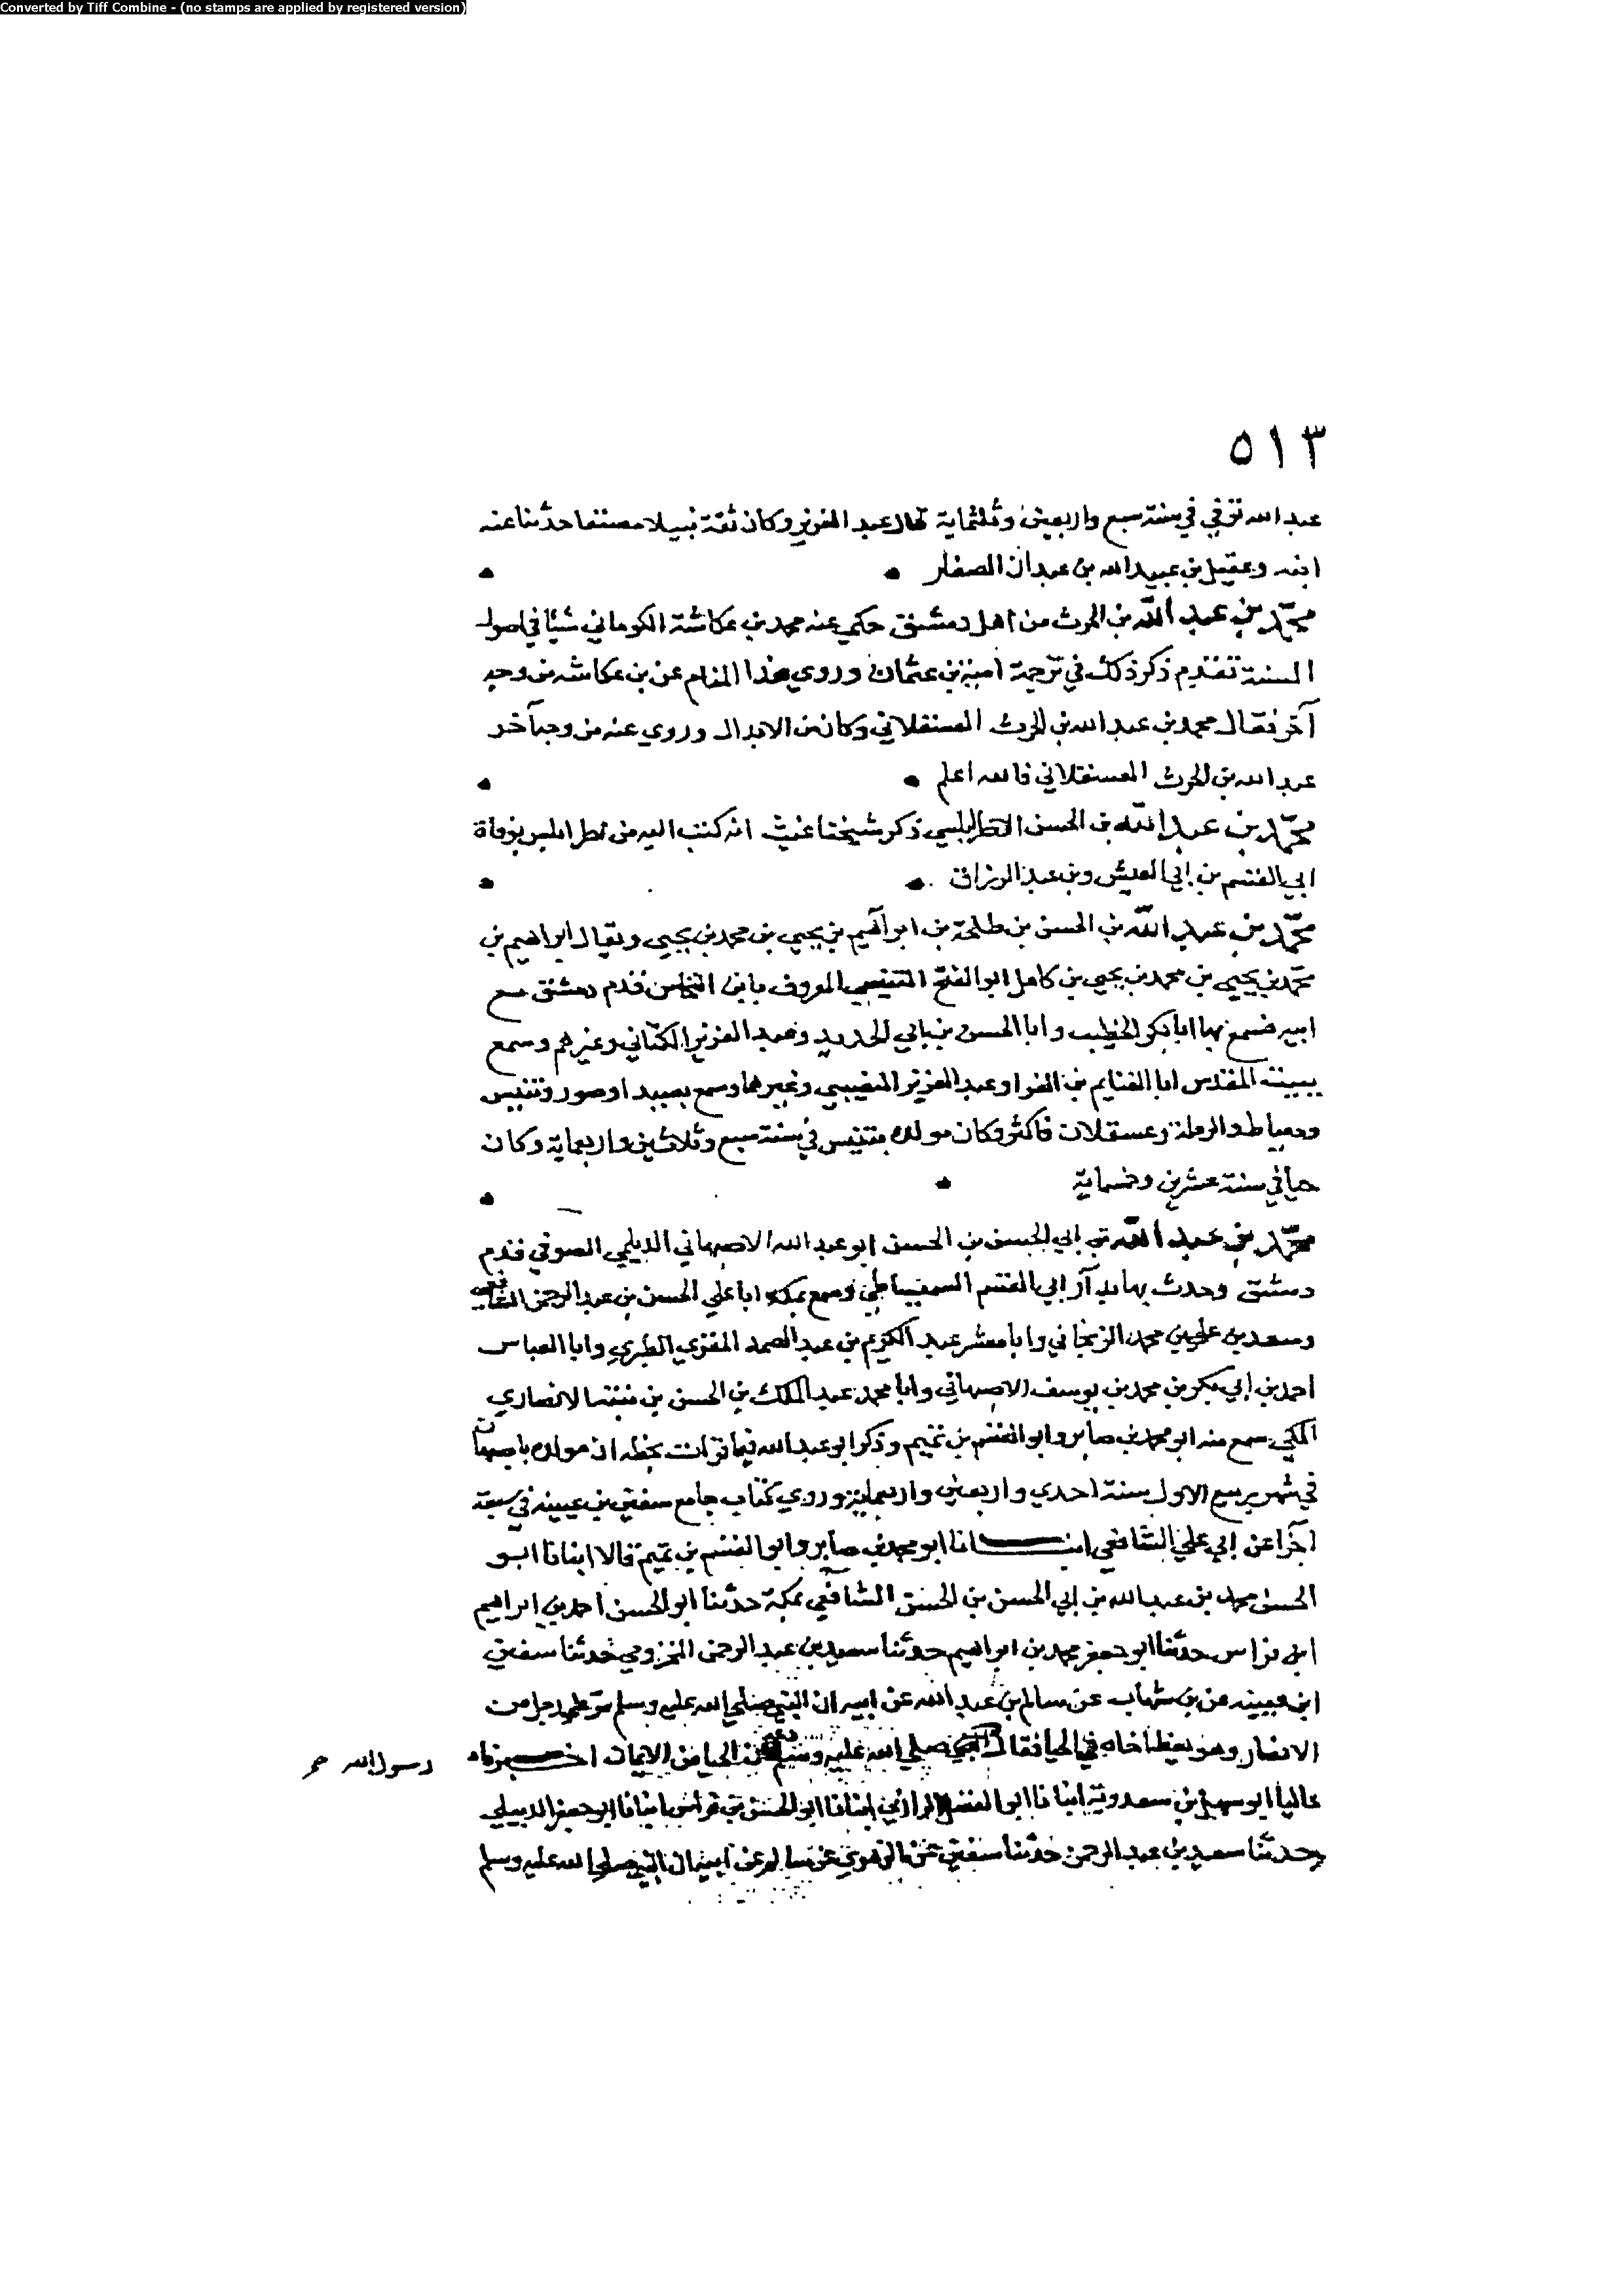 Converted by Tiff Combine - (no stamps are applied by registered version)
٥١٣
عبد الله توفي في سنة سبع واربعين وثلثماية قال عبد العزيز وكان ثقة نبيلا مصنفا حدثنا عنه
ابنه وعقيل بن عبيد الله بن عبدان الصفار
محمد بن عبد الله بن الحرث من اهل دمشق حكي عنه محمد بن عكاشة الكرماني شيئا في اصول
السنة تقدم ذكر ذلك في ترجمة امية بن عثمان وروي هذا المنام عن بن عكاشه من وجه
آخر فقال محمد بن عبد الله بن الحرث العسقلاني وكان من الابدال وروي عنه من وجه آخر
عبد الله بن الحرث العسقلاني فالله اعلم
محمد بن عبد الله بن الحسن الاطرابلسي ذكر شيخنا غيث انه كتب اليه من اطرابلس بوفاة
ابي القسم بن ابي العيش وبن عبد الرزاق
محمد بن عبد الله بن الحسن بن طلحة بن ابراهيم بن يحيي بن محمد بن يحيي ويقال ابراهيم بن
محمد بن يحيي بن محمد بن يحيي بن كامل ابو الفتح التنيسي المعروف بابن النخاس قدم دمشق مع
ابيه فسمع بها ابا بكر الخطيب وابا الحسن بن ابي الحديد وعبد العزيز الكتاني وغيرهم وسمع
ببيت المقدس ابا الغنايم بن الفرا وعبد العزيز النصيبي وغيرهما وسمع بصيدا وصور وتنيس
ودمياط والرملة وعسقلان فاكثر وكان مولده بتنيس في سنة سبع وثلاثين واربعماية وكان
حيا في سنة عشرين وخمسماية
محمد بن عبد الله بن ابي الحسن بن الحسن ابو عبد الله الاصبهاني الديلمي الصوفي قدم
دمشق وحدث بها بدار ابي القسم السميساطي وسمع بمكة ابا علي الحسن بن عبد الرحمن الشافعي
وسعد بن علي بن محمد الزنجاني وابا معشر عبد الكريم بن عبد الصمد المقري الطبري وابا العباس
احمد بن ابي بكر بن محمد بن يوسف الاصبهاني وابا محمد عبد الملك بن الحسن بن الانصاري
المكي سمع منه ابو محمد بن صابر وابو القسم بن تميم وذكر ابو عبد الله فيما قرات بخطه ان مولده باصبهان
في شهر ربيع الاول سنة احدي واربعين واربعماية وروي كتاب جامع سفين بن عيينه في سبعة
اجزا عن ابي علي الشافعي انبانا ابو محمد بن صابر وابو القسم بن تميم قالا انبانا ابو
الحسن محمد بن عبد الله بن ابي الحسن بن الحسن الشافعي بمكة حدثنا ابو الحسن احمد بن ابراهيم
ابن فراس حدثنا ابو جعفر محمد بن ابراهيم حدثنا سعيد بن عبد الرحمن المخزومي حدثنا سفين
ابن عيينه عن بن شهاب عن سالم بن عبد الله عن ابيه ان النبي صلي الله عليه وسلم مر علي رجل من
الانصار وهو يعظ اخاه في الحيا فقال صلي الله عليه وسلم دعه فان الحيا من الايمان اخبرناه
رسول الله صح
عاليا ابو سهل بن سعدويه انبانا ابو الفضل الرازي انبانا ابو الحسن بن فراس انبانا ابو جعفر الديبلي
حدثنا سعيد بن عبد الرحمن حدثنا سفين عن الزهري عن سالم عن ابيه ان النبي صلي الله عليه وسلم